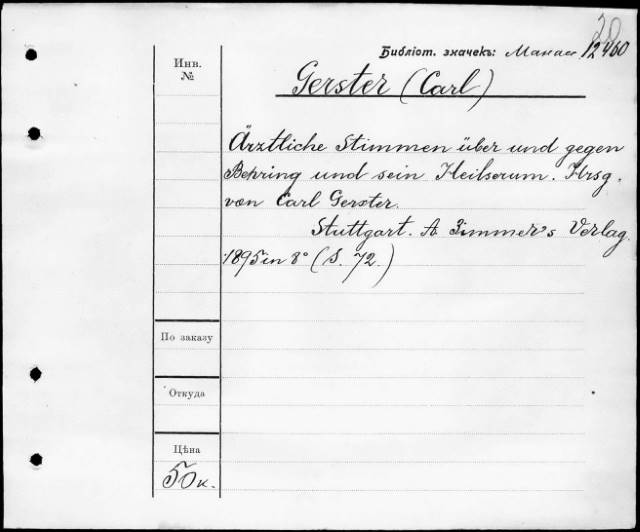 Библіот. значекъ: Манасс 12460
Инв.
№
Gerster (Carl)
Ärztliche Stimmen über und gegen
Behring und sein Heilserum. Hrsg.
von Carl Gerster.
Stuttgart. A Zimmer's Verlag.
1895 in 8° (S. 72.)
По заказу
Откуда
Цѣна
50 к.